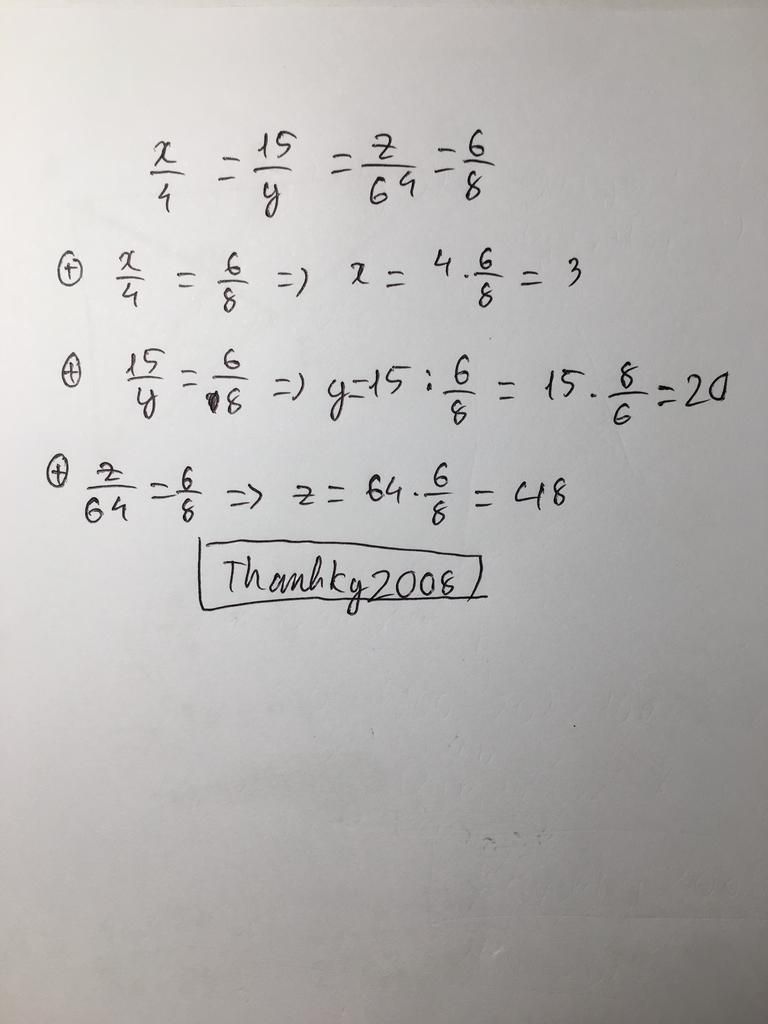 x/4 = 15/y = z/64 = 6/8
⊕ x/4 = 6/8 => x = 4 . 6/8 = 3
⊕ 15/y = 6/8 => y = 15 : 6/8 = 15 . 8/6 = 20
⊕ z/64 = 6/8 => z = 64 . 6/8 = 48
Thanhkg2008